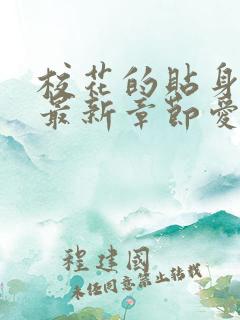 校花的貼身
最新章節愛
程建國
未经同意禁止转载